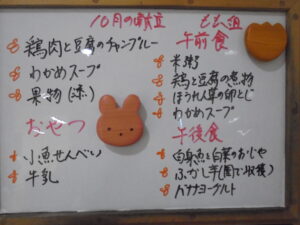 10月の献立
鶏肉と豆腐のチャンプルー
わかめスープ
果物(柿)
おやつ
小魚せんべい
牛乳
もも組
午前食
米粥
鶏と豆腐の煮物
ほうれん草の卵とじ
わかめスープ
午後食
白身魚と白菜のおじや
ふかし芋(園で収穫)
バナナヨーグルト